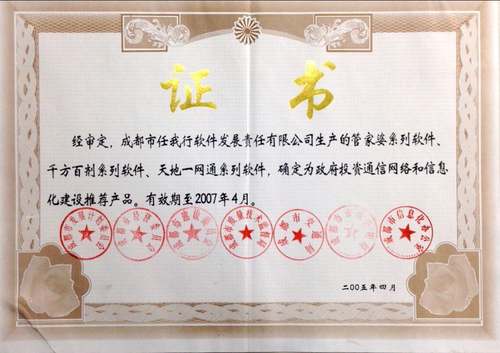 证书
经审定，成都市任我行软件发展责任有限公司生产的管家婆系列软件、
千方百剂系列软件、天地一网通系列软件，确定为政府投资通信网络和信息
化建设推荐产品。有效期至2007年4月。
成都市信息化办公室
二00五年四月